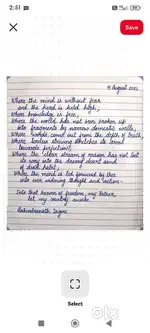 2:51
Save
14 August 2023
Where the mind is without fear
and the head is held high;
Where knowledge is free;
Where the world has not been broken up
into fragments by narrow domestic walls;
Where words come out from the depth of truth;
Where tireless striving stretches its arms
towards perfection;
Where the clear stream of reason has not lost
its way into the dreary desert sand
of dead habit;
Where the mind is led forward by thee
into ever widening thought and action-
Into that heaven of freedom, my Father,
let my country awake.
Rabindranath Tagore
Select
olx